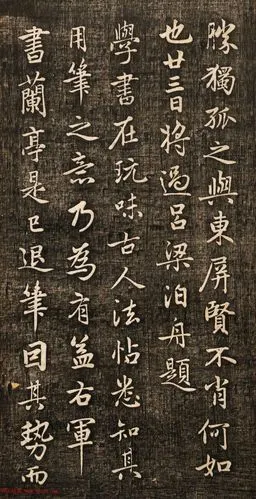 勝獨孤之與東屏賢不肖何如
也廿三日將過呂梁泊舟題
學書在玩味古人法帖悉知其
用筆之意乃為有益右軍
書蘭亭是已退筆因其勢而